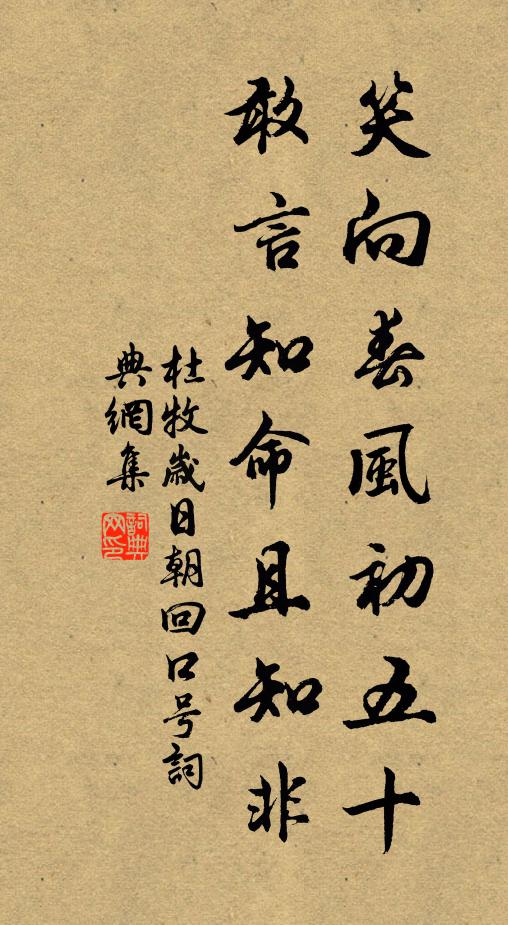 笑向春風初五十
敢言知命且知非
杜牧歲日朝回口号詞
典網集
詞典
网印